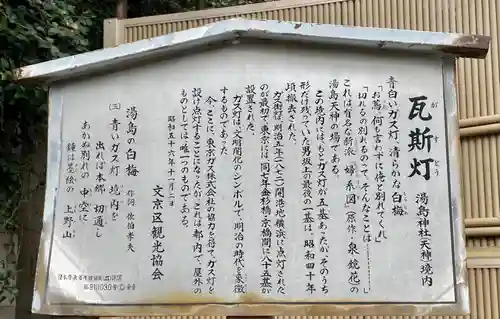 瓦斯灯
がすとう
湯島神社(天神)境内
青白いガス灯、清らかな白梅
「お蔦、何も言わずに俺と別れてくれ」
「切れるの別れるのって、そんなことは……」
これは有名な新派「婦系図」(原作・泉鏡花)の
湯島天神の場である。
この境内には、もとガス灯が五基あったが、そのうち
形だけ残っていた男坂上の二基は、昭和四十年
頃撤去された。
ガス街灯は、明治五年(一八七二)開港地横浜に点灯された
のが最初で、東京には、同七年金杉橋・京橋間に八十五基が
設置された。
ガス灯は、文明開化のシンボルで、明治の時代を象徴
するものであった。
今、ここに、東京ガス株式会社の協力を得て、ガス灯を
設け点灯することになったが、これは都内で、屋外の
ものとしては唯一のものである。
昭和五十六年十二月二日
文京区観光協会
湯島の白梅
作詞 佐伯孝夫
(三) 青いガス灯 境内を
出れば本郷 切通し
あかぬ別れの 中空に
鐘は墨絵の 上野山